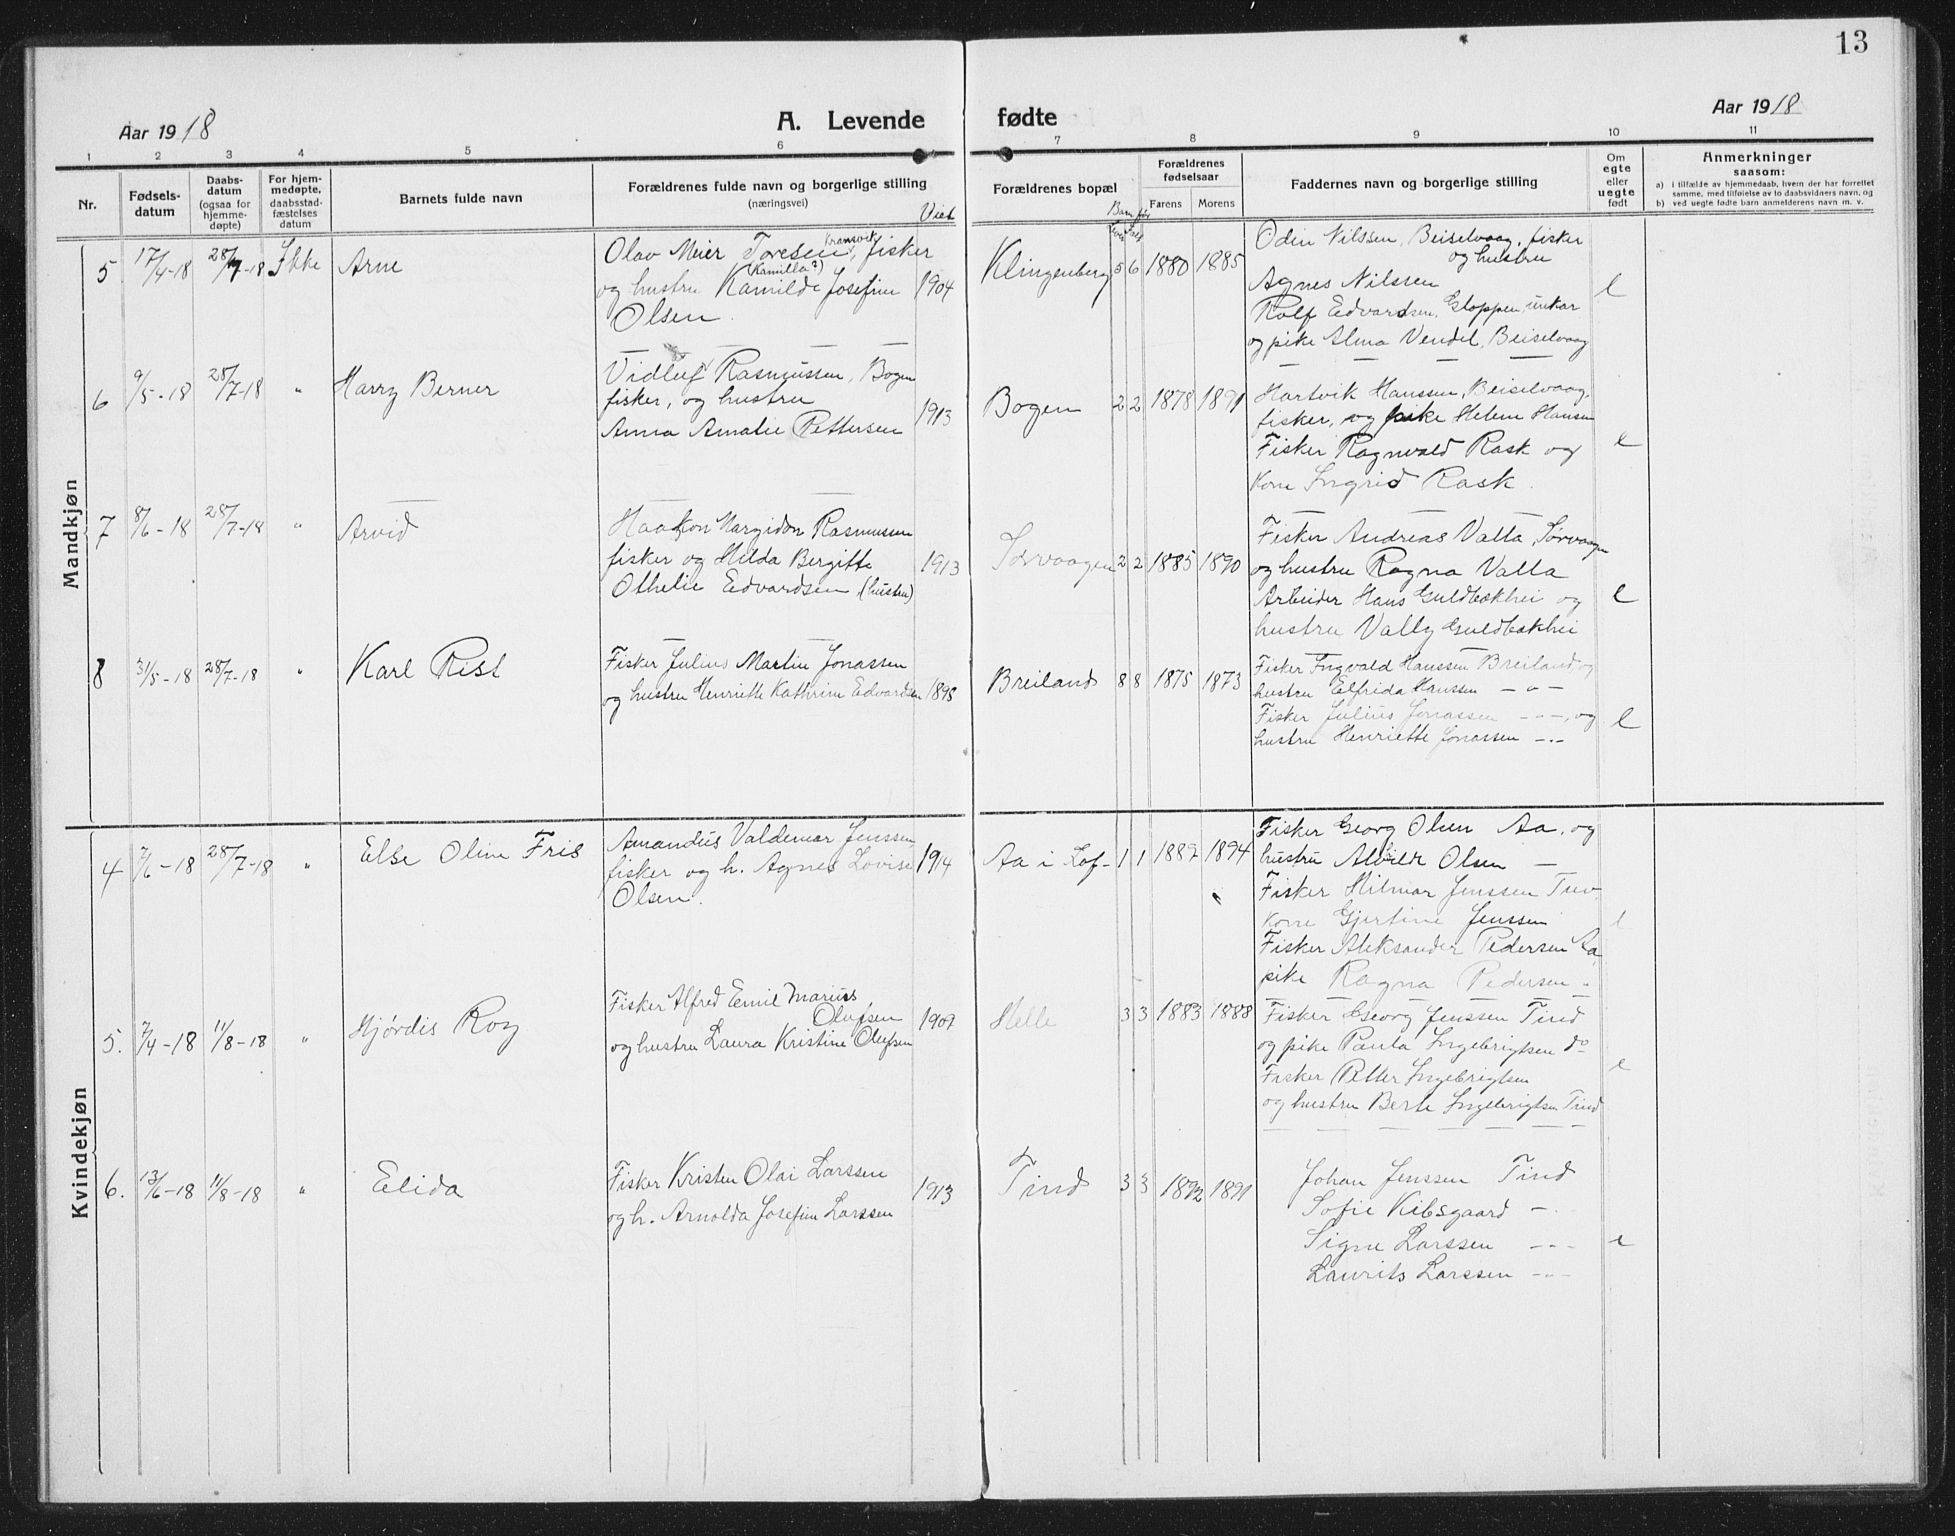 13
Aar 1918
A. Levende fødte
Aar 1918
1 2 3 4 5 6 7 8 9 10 11
Nr.
Fødsels-
datum
Daabs-
datum
(ogsaa for
hjemme-
døpte)
For hjem-
medøpte,
daabsstad-
fæstelses
datum
Barnets fulde navn
Forældrenes fulde navn og borgerlige stilling
(næringsvei)
Viet
Forældrenes bopæl
Barn før
Forældrenes
fødselsaar
Farens Morens
Faddernes navn og borgerlige stilling
Om
egte
eller
uegte
født
Anmerkninger
saasom:
a) i tilfælde av hjemmedaab, hvem der har forrettet
samme, med tilføielse av to daabsvidners navn, og
b) ved uegte fødte barn anmelderens navn m. v.
Mandkjøn
5 17/4-18 28/7-18 Ikke Arne
Olav Meier Toresen Kransvik, fisker
(Kamilla?)
og hustru Kamilde Josefine 1904
Olsen.
Klingenberg 5 6 1880 1885
Odin Nilssen, Beiselvaag, fisker
og hustru
Agnes Nilssen
Rolf Edvardsen, Gloppen, unkar
og pike Alma Vendel, Beiselvaag
e
6 9/5-18 28/7-18 " Harry Berner
Vidluf Rasmussen, Bogen
fisker, og hustru
Anna Amalie Pettersen 1913
Bogen 2 2 1878 1891
Hartvik Hanssen, Beiselvaag,
fisker, og pike Helene Hansen
Fisker Ragnvald Rask og
Kone Ingrid Rask.
e
7 8/6-18 28/7-18 " Arvid
Haakon Margidon Rasmussen
fisker og Hilda Bergitte 1913
Othelie Edvardsen (hustru)
Sørvaagen 2 2 1885 1890
Fisker Andreas Valla, Sørvaagen
og hustru Ragna Valla
Arbeider Hans Guldbakhei og
hustru Vally Guldbakhei
e
8 31/5-18 28/7-18 " Karl Rist
Fisker Julius Martin Jonassen
og hustru Henriette Kathrine Edvardsen 1895
Breiland 8 8 1875 1873
Fisker Ingvald Hanssen Breiland, og
hustru Elfrida Hanssen - " -
Fisker Julius Jonassen - " -, og
hustru Henriette Jonassen - " -
e
Kvindekjøn
4 7/6-18 28/7-18 " Else Oline Fris
Amandus Valdemar Jenssen
fisker og h. Agnes Lovise 1914
Olsen.
Aa i Lof- 1 1 1889 1894
Fisker Georg Olsen Aa, og
hustru Alvilde Olsen -
Fisker Hilmar Jenssen
Kone Gjertine Jenssen
Fisker Aleksander Pedersen Aa,
pike Ragna Pedersen "
e
5. 7/4-18 11/8-18 " Hjørdis Roy
Fisker Alfred Emil Marius
Olufsen 1907
og hustru Laura Kristine Olufsen
Helle 3 3 1883 1888
Fisker Georg Jenssen Tind
og pike Paula Ingebrigtsen do
Fisker Petter Ingebrigtsen
og hustru Berte Ingebrigtsen Tind
e
6. 13/6-18 11/8-18 " Elida
Fisker Kristen Olai Larssen
og h. Arnolda Josefine Larssen 1913
Tind 3 3 1892 1891
Johan Jenssen Tind
Sofie Kibsgaard - " -
Signe Larssen - " -
Laurits Larssen - " -
e